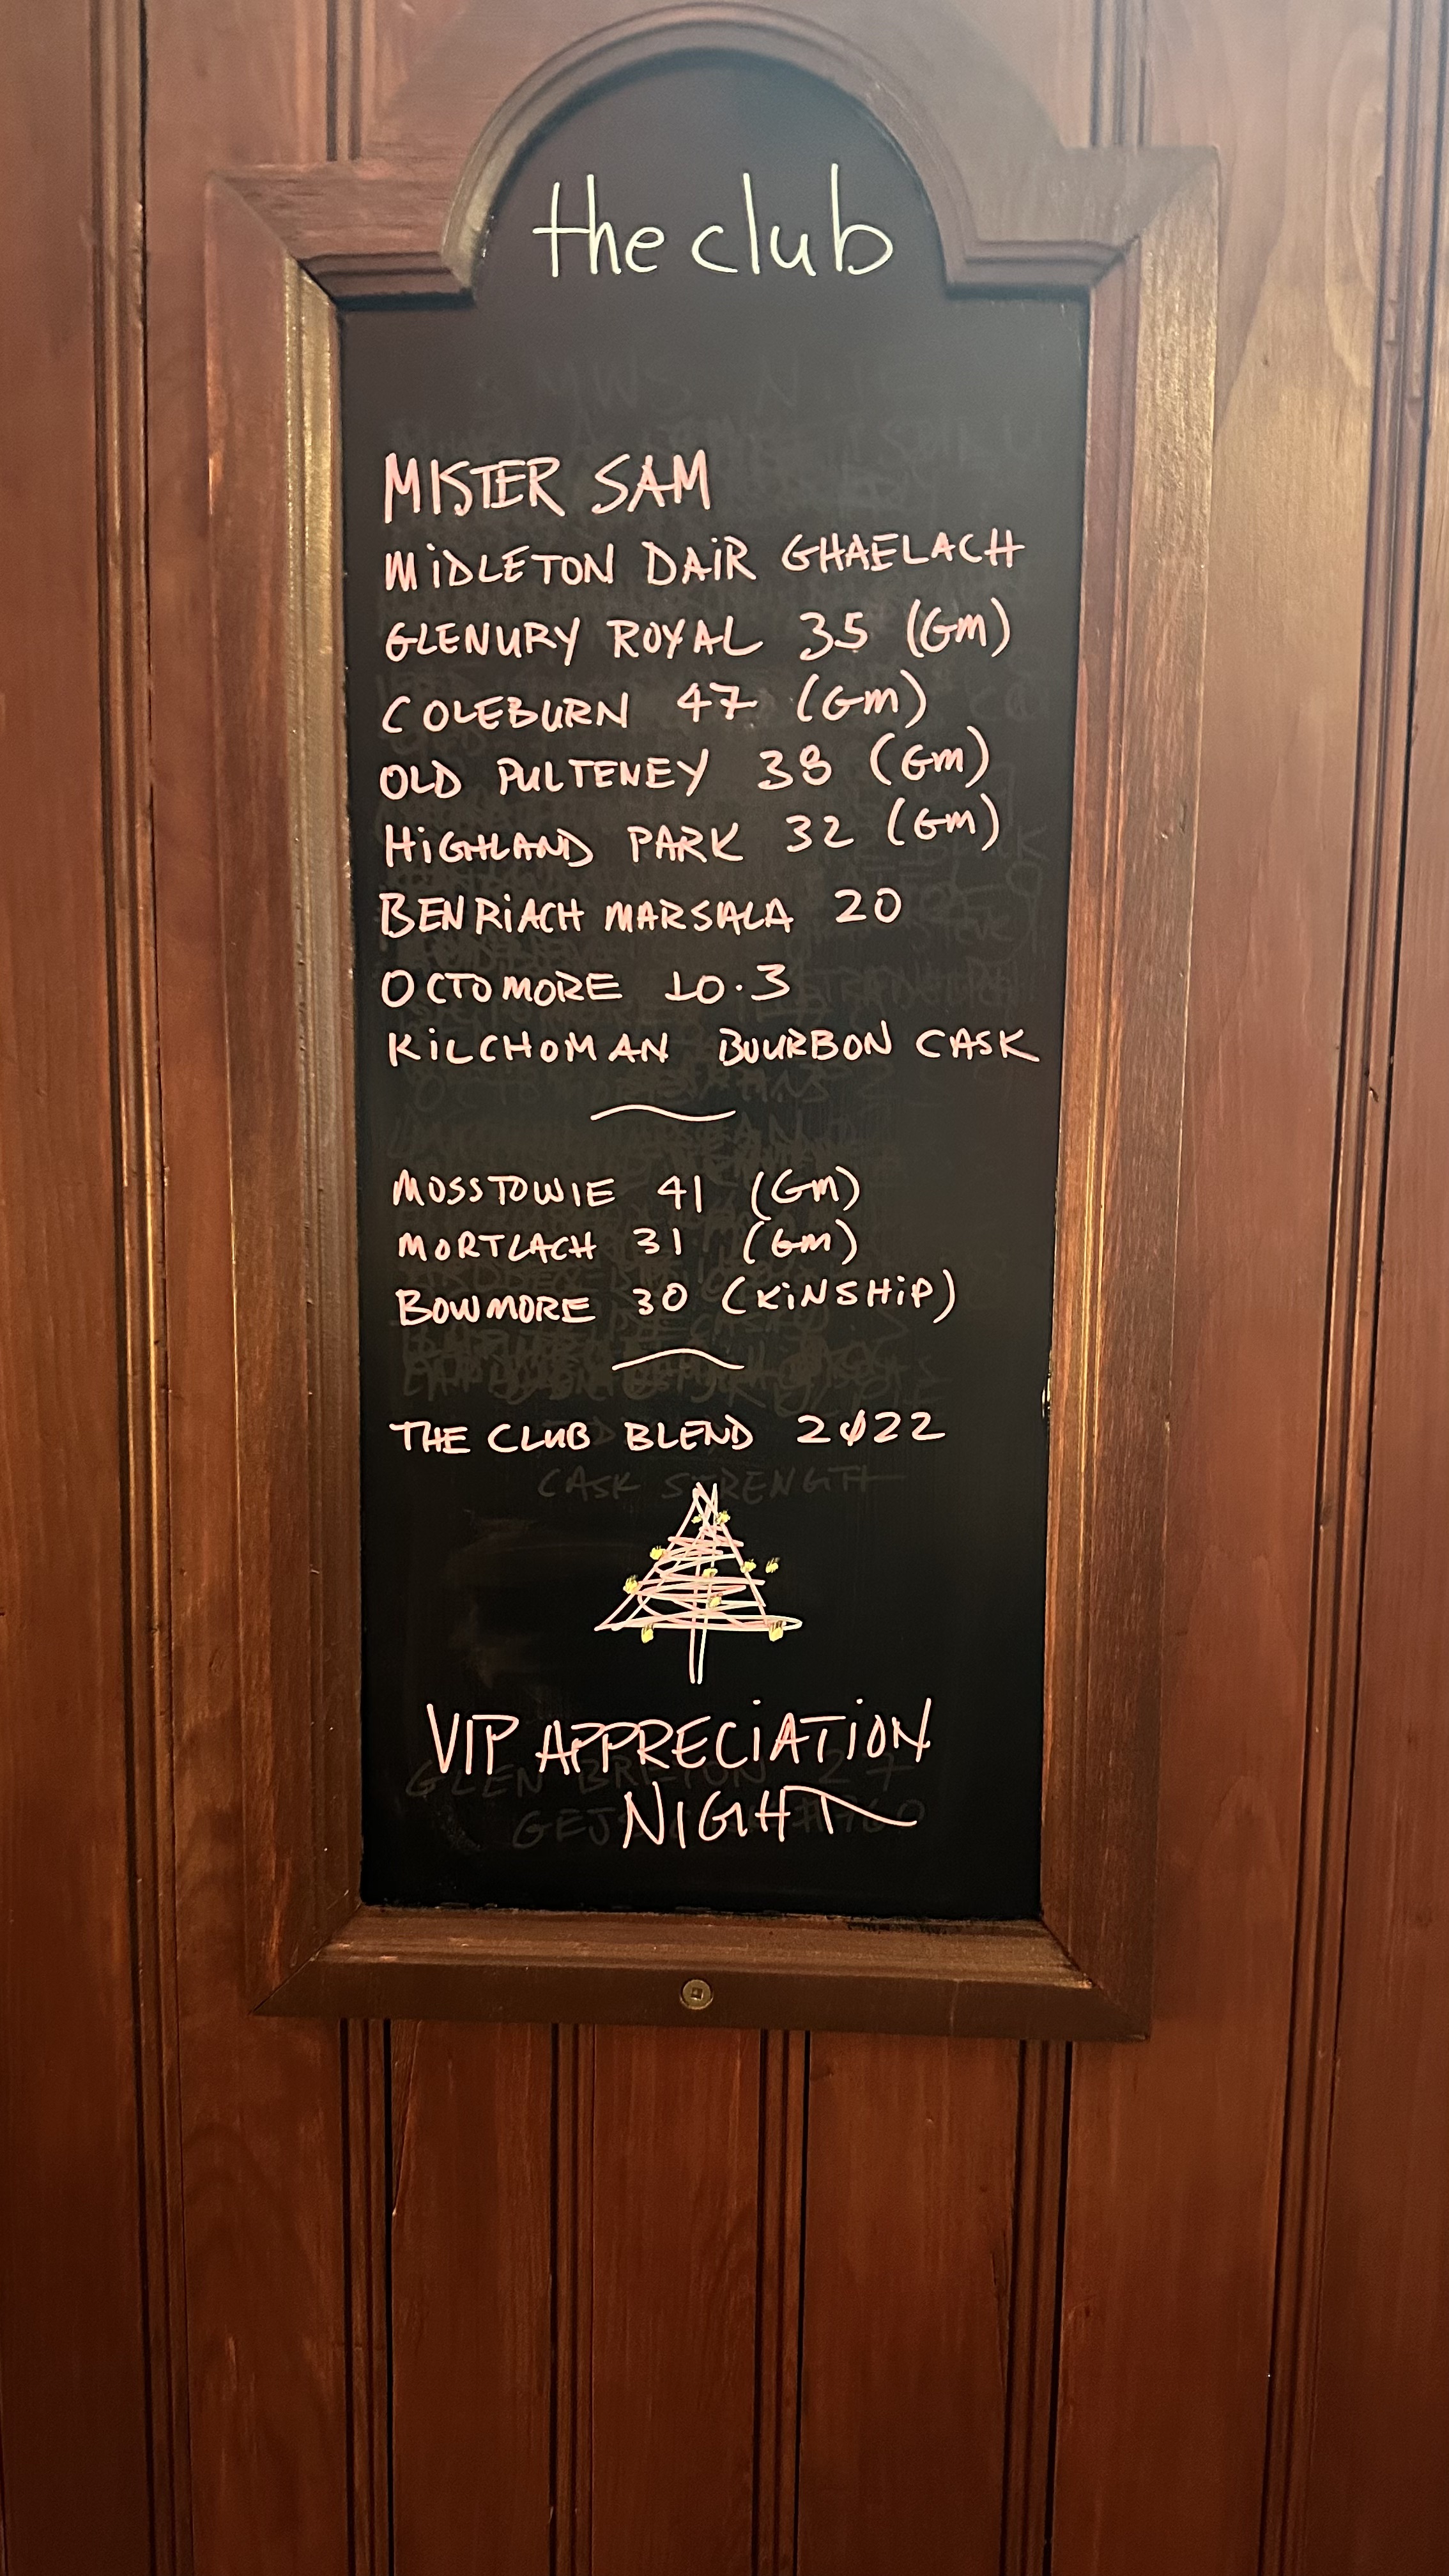 the club
MISTER SAM
MiDLETON DAiR GHAELACH
GLENURY ROYAL 35 (Gm)
COLEBURN 47 (Gm)
OLD PULTENEY 38 (Gm)
HiGHLAND PARK 32 (Gm)
BENRiACH MARSALA 20
OCTOMORE 10.3
KiLCHOMAN BOURBON CASK
MOSSTOWIE 41 (Gm)
MORTLACH 31 (Gm)
BOWMORE 30 (KiNSHiP)
THE CLUB BLEND 2022
CASK STRENGTH
VIP APPRECIATION
GLEN BRETON 27
NIGHT